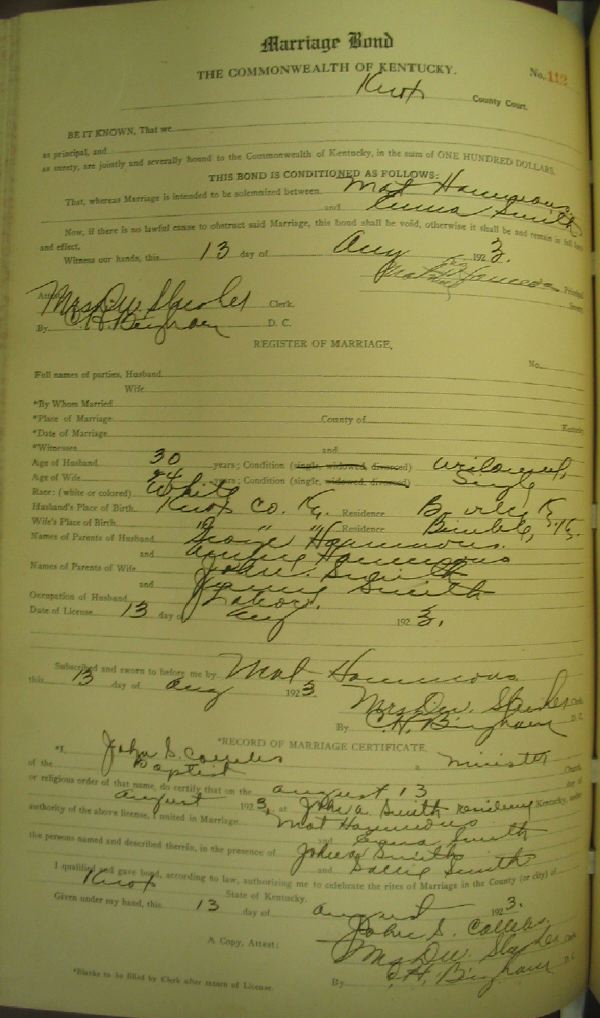 Marriage Bond
THE COMMONWEALTH OF KENTUCKY.
No. 112
Knox County Court.
BE IT KNOWN, That we
as principal, and
as surety, are jointly and severally bound to the Commonwealth of Kentucky, in the sum of ONE HUNDRED DOLLARS.
THIS BOND IS CONDITIONED AS FOLLOWS:
That, whereas Marriage is intended to be solemnized between Mat Hammons
and Emma Smith
Now, if there is no lawful cause to obstruct said Marriage, this bond shall be void, otherwise it shall be and remain in full force
and effect.
Witness our hands, this 13 day of Aug 1923.
Mat Hammons Principal
Surety
Attest:
Mrs D.W. Clerk.
By C H Bingham D. C.
REGISTER OF MARRIAGE,
No.
Full names of parties, Husband
Wife
*By Whom Married
*Place of Marriage County of Kentucky
*Date of Marriage
*Witnesses and
Age of Husband 30 years; Condition (single, widowed, divorced) widowed,
Age of Wife 24 years; Condition (single, widowed, divorced) Single
Race: (white or colored) White
Husband's Place of Birth Knox Co. Ky. Residence
Wife's Place of Birth " " " Residence Bimble, Ky.
Names of Parents of Husband George Hammons.
and Hammons
Names of Parents of Wife John Smith
and Smith
Occupation of Husband Labor.
Date of License 13 day of Aug 1923.
Subscribed and sworn to before me by Mat Hammons
this 13 day of Aug 1923. Mrs D.W. Clerk
By C.H. Bingham D. C.
*RECORD OF MARRIAGE CERTIFICATE.
*I, John S. a minister
of the Baptist Church,
or religious order of that name, do certify that on the August 13 day of
August 1923, at John A. Smith residence Kentucky, under
authority of the above license, I united in Marriage Mat Hammons
and Emma Smith
the persons named and described therein, in the presence of John Smith
and Smith
I qualified and gave bond, according to law, authorizing me to celebrate the rites of Marriage in the County (or city) of
Knox State of Kentucky.
Given under my hand, this 13 day of August 1923.
John S.
A Copy, Attest: Mrs D.W. Clerk
By C.H. Bingham D. C.
*Blanks to be filled by Clerk after return of License.